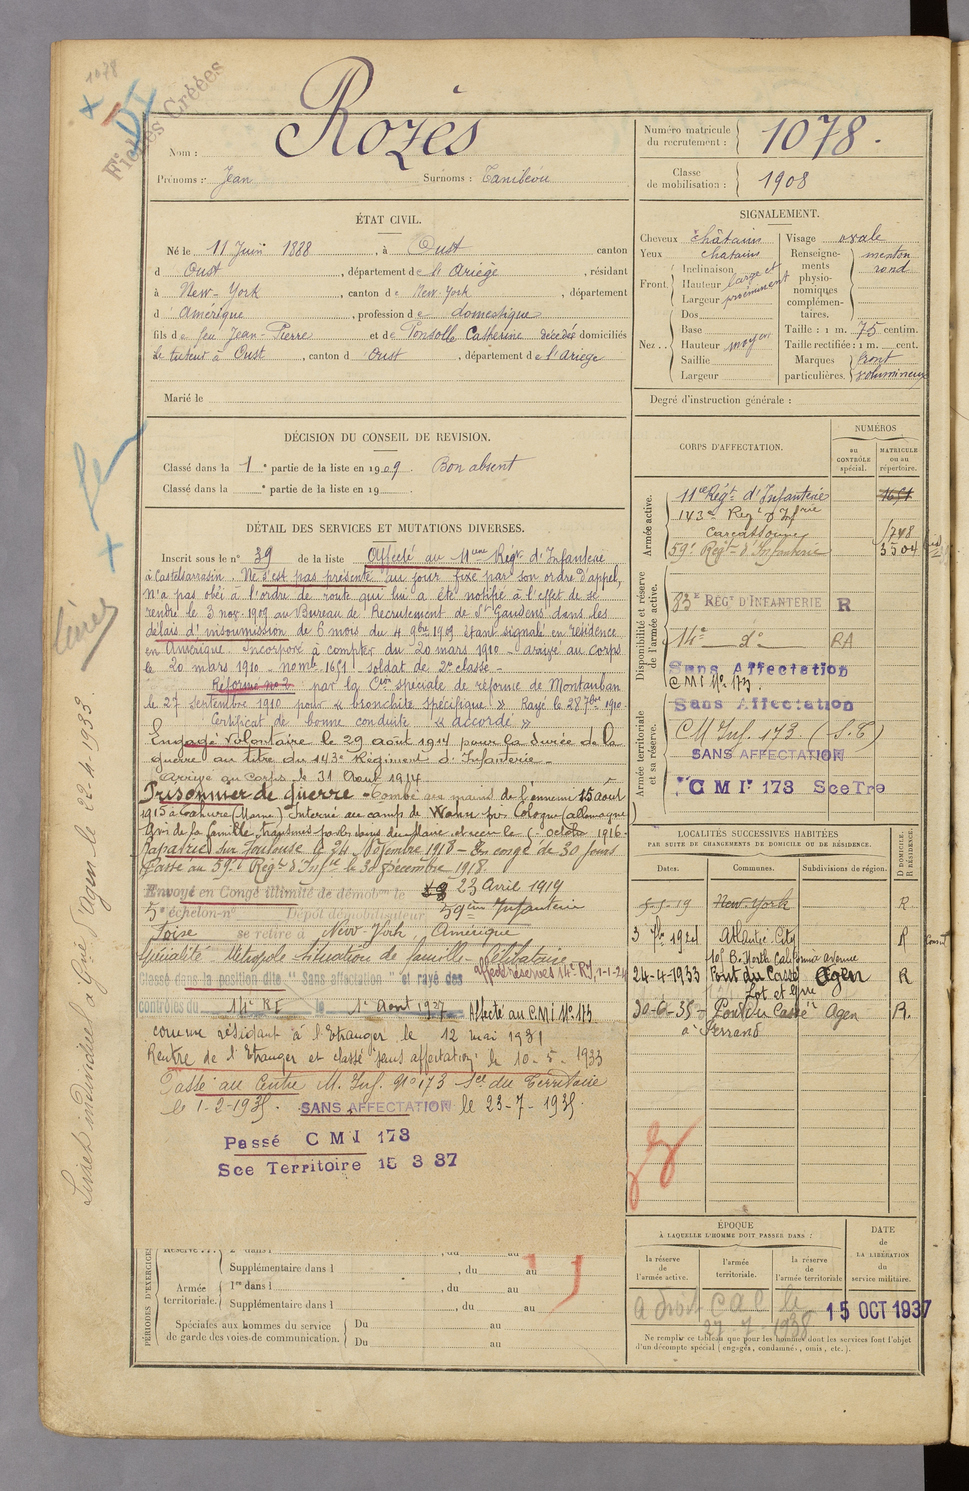 1078
DI
Fiches Créées
Nom : Rozès
Prénoms : Jean Surnoms : Tanibeou
Numéro matricule du recrutement : 1078.
Classe de mobilisation : 1908
ÉTAT CIVIL.
Né le 11 Juin 1888, à Oust canton
d Oust, département de l'Ariège, résidant
à New-York, canton de New-York, département
d Amérique, profession de domestique
fils de feu Jean-Pierre et de Ponsolle Catherine décédés domiciliés
le tuteur à Oust, canton d'Oust, département de l'Ariège
Marié le
SIGNALEMENT.
Cheveux châtains
Yeux chatains
Front. Inclinaison
Hauteur large et
Largeur proéminent
Nez.. Dos
Base
Hauteur moyen
Saillie
Largeur
Visage ovale
Renseignements physionomiques complémentaires. menton rond
Taille : 1 m. 75 centim.
Taille rectifiée : 1 m. cent.
Marques particulières. front volumineux
Degré d'instruction générale :
DÉCISION DU CONSEIL DE REVISION.
Classé dans la 1e partie de la liste en 1909. Bon absent
Classé dans la e partie de la liste en 19 .
DÉTAIL DES SERVICES ET MUTATIONS DIVERSES.
Inscrit sous le n° 39 de la liste Affecté au 11eme Régt d'Infanterie
à Castelsarrasin. Ne s'est pas présenté au jour fixé par son ordre d'appel,
n'a pas obéi à l'ordre de route qui lui a été notifié à l'effet de se
rendre le 3 nov. 1909 au Bureau de Recrutement de St Gaudens dans les
délais d'insoumission de 6 mois du 4 9bre 1909 étant signalé en résidence
en Amérique. Incorporé à compter du 20 mars 1910 - arrivé au corps
le 20 mars 1910 - nomte 1651 - soldat de 2e classe -
Réformé no 2 par la Con spéciale de réforme de Montauban
le 27 septembre 1910 pour « bronchite spécifique » Rayé le 28 7bre 1910
Certificat de bonne conduite « accordé »
Engagé volontaire le 29 août 1914 pour la durée de la
guerre au titre du 143e Régiment d'Infanterie -
Arrivé au corps le 31 Aout 1914
Prisonnier de guerre - Tombé aux mains de l'ennemi 15 août
1915 à (Marne) Interné au camp de Wahn près Cologne (allemagne
Avis de la famille, transmis par les soins du Maire et reçu le octobre 1916 -
Rapatrié sur Toulouse le 24 Novembre 1918 - En congé de 30 jours
Passé au 59e Régt d'Infie le 30 Décembre 1918.
Envoyé en Congé illimité de démobon le 23 Avril 1919
5e échelon-n° Dépôt démobilisateur 59eme Infanterie
se retire à New York, Amérique
Spécialité Métropole Situation de famille - Célibataire
Classé dans la position dite "Sans affectation" et rayé des
affecté réserves 14e RI, 1-1-24
contrôles du 14e RI le 1er Aout 1927 - Affecté au C.M.I No 173
comme résidant à l'Etranger le 12 mai 1931
Rentre de l'Etranger et classé "sans affectation" le 10-5-1933
Passé au Centre M. Inf. No 173 Son du Territoire
le 1-2-1935. SANS AFFECTATION le 23-7-1935.
Passé C M I 173
Sce Territoire 15 3 37
Livret individuel à Gnie d'Agen le 22-4-1933.
CORPS D'AFFECTATION.
NUMÉROS
au CONTRÔLE spécial.
MATRICULE ou au répertoire.
Armée active.
11me Régt d'Infanterie 1651
143e Regt d'Infrie
Carcassonne 1748
59e Regt d'Infanterie 3504
Disponibilité et réserve de l'armée active.
83e RÉGt D'INFANTERIE R
14e do RA
Sans Affectation
C M I No 173.
Armée territoriale et sa réserve.
Sans Affectation
CM Inf. 173. (S.T)
SANS AFFECTATION
C M I 173 Sce Tre
LOCALITÉS SUCCESSIVES HABITÉES
PAR SUITE DE CHANGEMENTS DE DOMICILE OU DE RÉSIDENCE.
D. DOMICILE. R. RÉSIDENCE.
Dates. Communes. Subdivisions de région.
5-5-19 New York R
3 1924 Atlantic City R
105 B. North California avenue
24-4-1933 Pont du Casse Agen R
Lot et Gne
30-6-35 Pont du Casse Agen R.
à Serrand
ÉPOQUE
À LAQUELLE L'HOMME DOIT PASSER DANS :
DATE DE LA LIBÉRATION du service militaire.
la réserve de l'armée active.
l'armée territoriale.
la réserve de l'armée territoriale
a droit C a C le
27-7-1938
15 OCT 1937
Ne remplir ce tableau que pour les hommes dont les services font l'objet
d'un décompte spécial (engagés, condamnés, omis, etc.).
PÉRIODES D'EXERCICES
Supplémentaire dans l , du au
Armée territoriale. 1re dans l , du au
Supplémentaire dans l , du au
Spéciales aux hommes du service
de garde des voies de communication. Du au
Du au